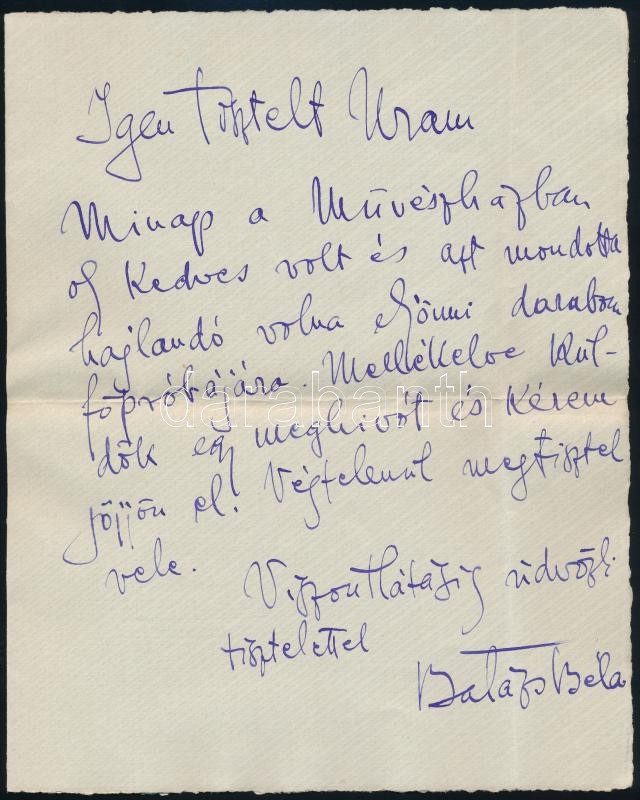 Igen Tisztelt Uram
Minap a Művészházban
oly kedves volt és azt mondotta
hajlandó volna eljönni darabom
főpróbájára. Mellékelve kül-
dök egy meghivót és kérem
jöjjön el. Végtelenül megtisztel
vele.
Viszontlátásig üdvözli
tisztelettel
Balázs Béla
darabanth